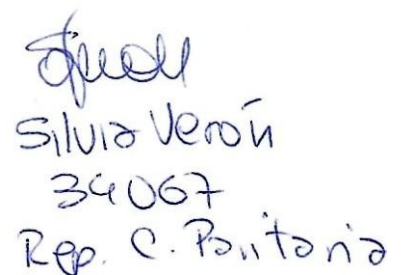 Silvia Verón
34067
Rep. C. Paritaria